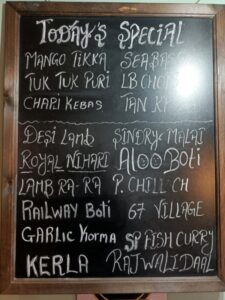 TODAY'S SPECIAL
MANGO TIKKA SEABASS
TUK TUK PURI LB CHOP
CHAPI KEBAS TAN
DESI Lamb SINDRY MALAI
ROYAL NIHARI ALOO BOTI
LAMB RA-RA P. CHILL CH
RAILWAY BOTI 67 VILLAGE
GARLIC KORMA SP FISH CURRY
KERLA RAJWALIDAAL